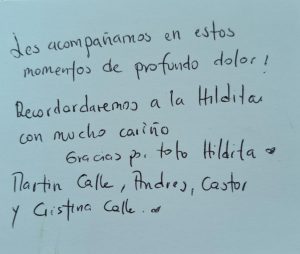 Les acompañamos en estos
momentos de profundo dolor!
Recordardaremos a la Hildita
con mucho cariño
Gracias por toto Hildita
Martin Calle, Andres, Castor
y Cristina Calle.